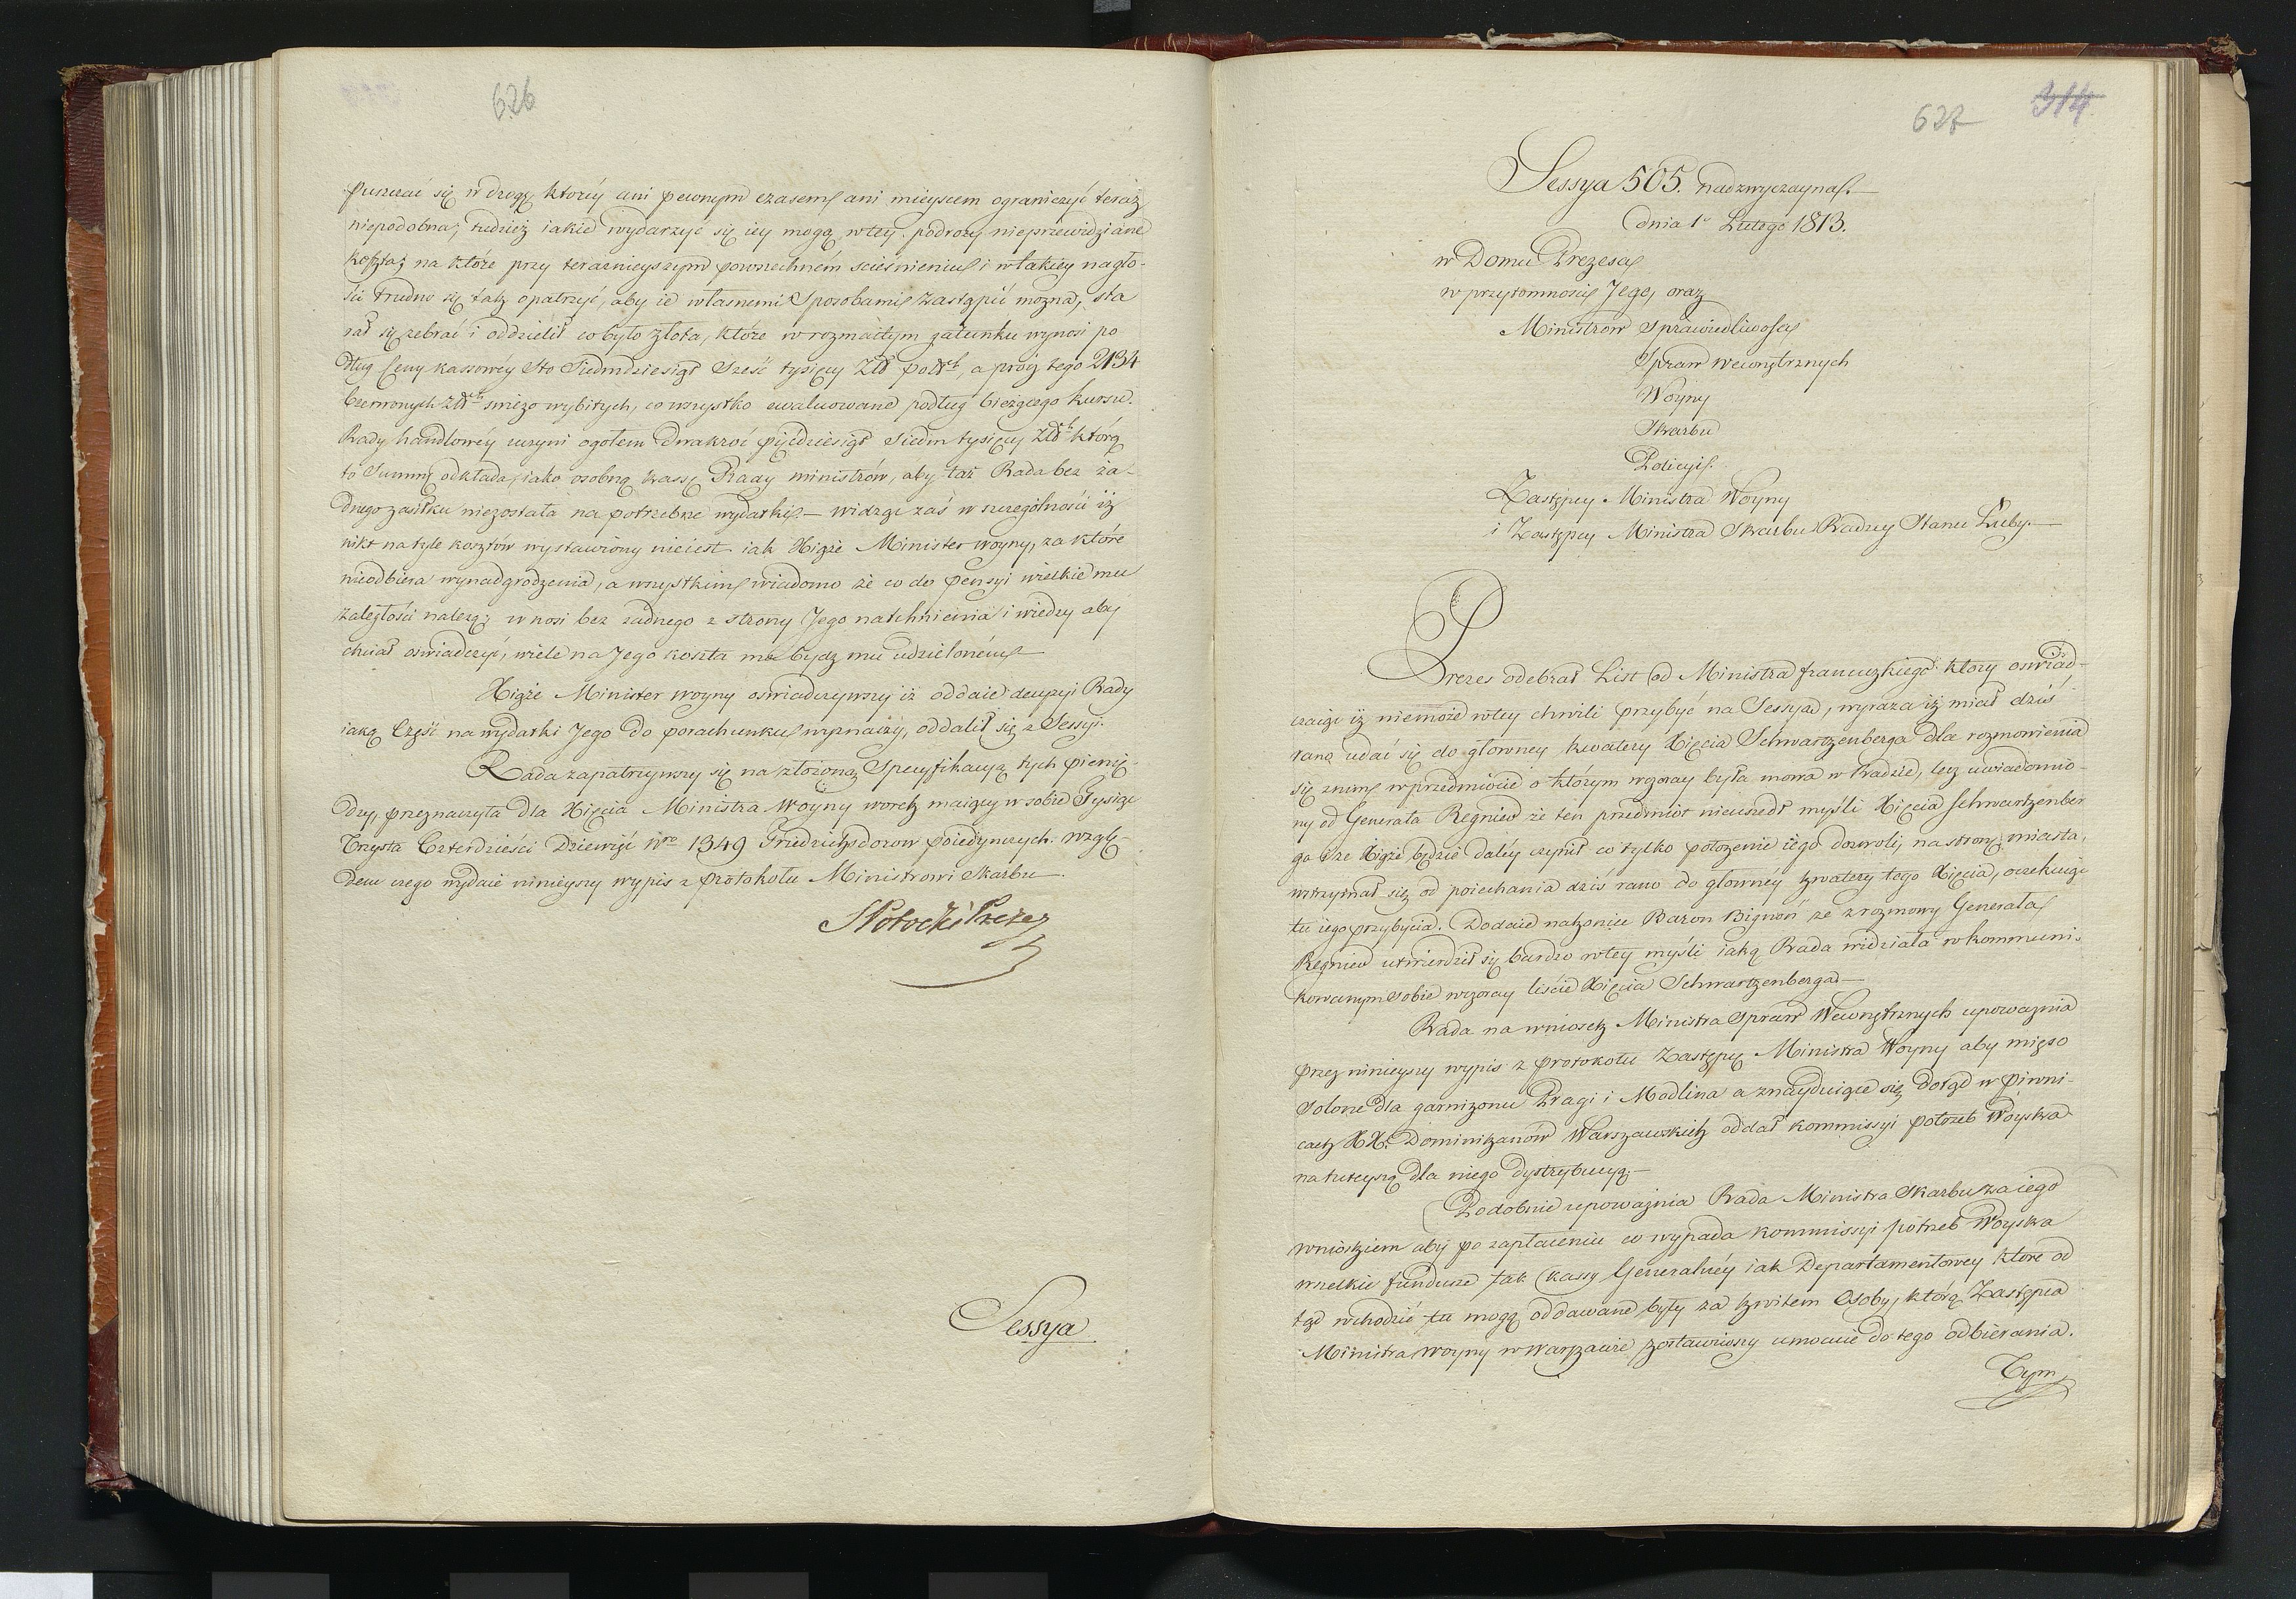 626
puszczać się w drogę, ktorey ani pewnym czasem ani mieyscem ograniczyć teraz
niepodobna, tudzież iakie wydarzyć się iey mogą w tey podroży nieprzewidziane
koszta; na które przy teraznieyszym powszechném scieśnieniu i w takiey nagło-
ści trudno się tak opatrzyć, aby ie własnemi sposobami zastąpić można, sta
rał się zebrać i oddzielił co było złota, które w rozmaitym gatunku wynosi po
dług Ceny kassowéy Sto Siedmdziesiąt Sześć tysięcy Złt pols., a prócz tego 2134
Czerwonych Złtch swieżo wybitych, co wszystko ewaluowane podług bieżącego kursu
Rady handlowéy uczyni ogołem dwakroć pięćdziesiąt siedm tysięcy Złtch którą
to Summę odkłada, iako osobną kassę Rady ministrów, aby taż Rada bez ża-
dnego zasiłku niezostała na potrzebne wydatki. — widząc zaś w szczególności iż
nikt na tyle kosztów wystawiony nieiest iak Xiąże Minister woyny, za które
nieodbiera wynadgrodzenia, a wszystkim wiadomo że co do pensyi wielkie mu
zaległości należą; wnosi bez żadnego z strony Jego natchnienia i wiedzy aby
chciał oświadczyć, wiele na Jego koszta ma bydz mu udzielonem —
Xiąże Minister woyny oświadczywszy iż oddaie decyzyi Rady
iaką Część na wydatki Jego do porachunku wyznaczy, oddalił się z Sessyi.
Rada zapatrzywszy się na złożoną Specyfikacyą tych pienię-
dzy, przeznaczyła dla Xięcia Ministra Woyny worek maiący w sobie Tysiąc
Trzysta Czterdzieści Dziewięć Nro 1349 Friedrichsdorow poiedynczych. Wzglę-
dem czego wydaie ninieyszy wypis z protokołu Ministrowi Skarbu —
S Potocki Prezes
Sessya
627 314
Sessya 505. nadzwyczayna. —
dnia 1o Lutego 1813.
w Domu Prezesa
w przytomności Jego, oraz
Ministrów Sprawiedliwości
Spraw wewnętrznych
Woyny
Skarbu
Policyi.
Zastępcy Ministra Woyny
i Zastępcy Ministra Skarbu Radzcy Stanu Łuby. —
Prezes odebrał List od Ministra francuzkiego ktory oswiad-
czaiąc iż niemoże w tey chwili przybyć na Sessyą, wyraża iż miał dziś
rano udać się do głowney kwatery Xięcia Schwartzenberga dla rozmowienia
się z nim w przedmiocie o którym wczoray była mowa w Radzie, lecz uwiadomio-
ny od Generała Regnier że ten przedmiot nieuszedł myśli Xięcia Schwartzenber
ga i że Xiąże będzie daléy czynił co tylko położenie iégo dozwoli na stronę miasta,
wstrzymał się od poiechania dzis rano do głownéy kwatery tego Xięcia, oczekuiąc
tu iego przybycia. Dodaie nakoniec Baron Bignon że z rozmowy Generała
Regnier utwierdził się bardzo w tey myśli iaką Rada widziała w kommuni-
kowanym sobie wczoray liście Xięcia Schwartzenberga. —
Rada na wniosek Ministra Spraw Wewnętrznych upoważnia
przez ninieyszy wypis z protokołu Zastępcę Ministra Woyny aby mięso
solone dla garnizonu Pragi i Modlina a znayduiące się dotąd w piwni-
cach XX. Dominikanów Warszawskich oddał kommissyi potrzeb Woyska
na tuteyszą dla niego dystrybucyą. —
Podobnie upoważnia Rada Ministra Skarbu za iego
wnioskiem aby po zapłaceniu co wypada kommissyi potrzeb Woyska
wszelkie fundusze tak kassy Generalnéy iak Departamentowey które od
tąd wchodzić tu mogą oddawane były za kwitem Osoby, którą Zastępca
Ministra Woyny w Warszawie zostawiwszy umocuie do tego odbierania.
Tym